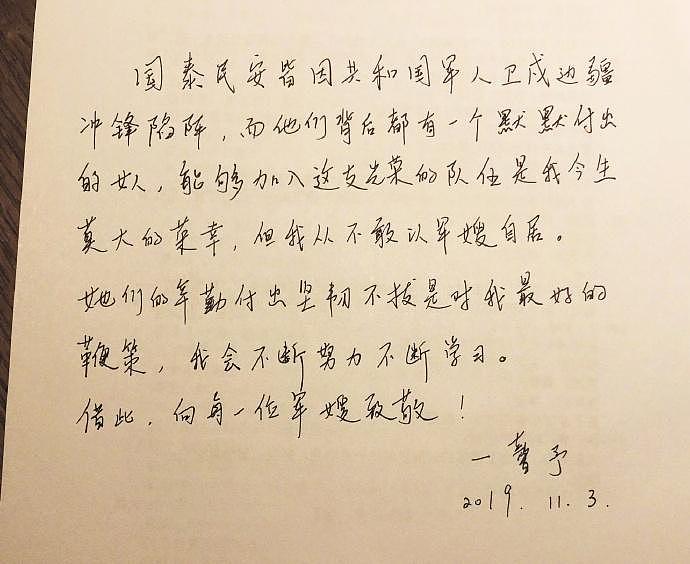 国泰民安皆因共和国军人卫戍边疆
冲锋陷阵,而他们背后都有一个默默付出
的女人,能够加入这支光荣的队伍是我今生
莫大的荣幸,但我从不敢以军嫂自居。
她们的辛勤付出坚韧不拔是对我最好的
鞭策,我会不断努力不断学习。
借此,向每一位军嫂致敬!
一馨予
2019. 11. 3.